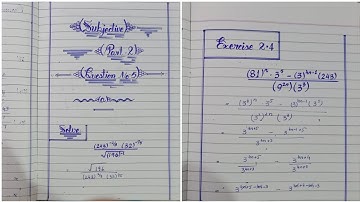 (Subjective)
(Part 2)
(Question No 5)
Solve
(243)^-2/3 (32)^-1/5
√(196)^-1
√196
(243)^2/3 (32)^1/5
Exercise 2.4
(81)^n · 3^5 − (3)^4n-1 (243)
(9^2n)(3^3)
= (3^4)^n · 3^5 − (3)^4n-1 (3^5)
(3^2)^2n (3^3)
= 3^4n+5 − 3^4n-1+5
3^4n+3
= 3^4n+5 − 3^4n+4
3^4n+3 3^4n+3
= 3^4n+5-4n-3 − 3^4n+4-4n-3